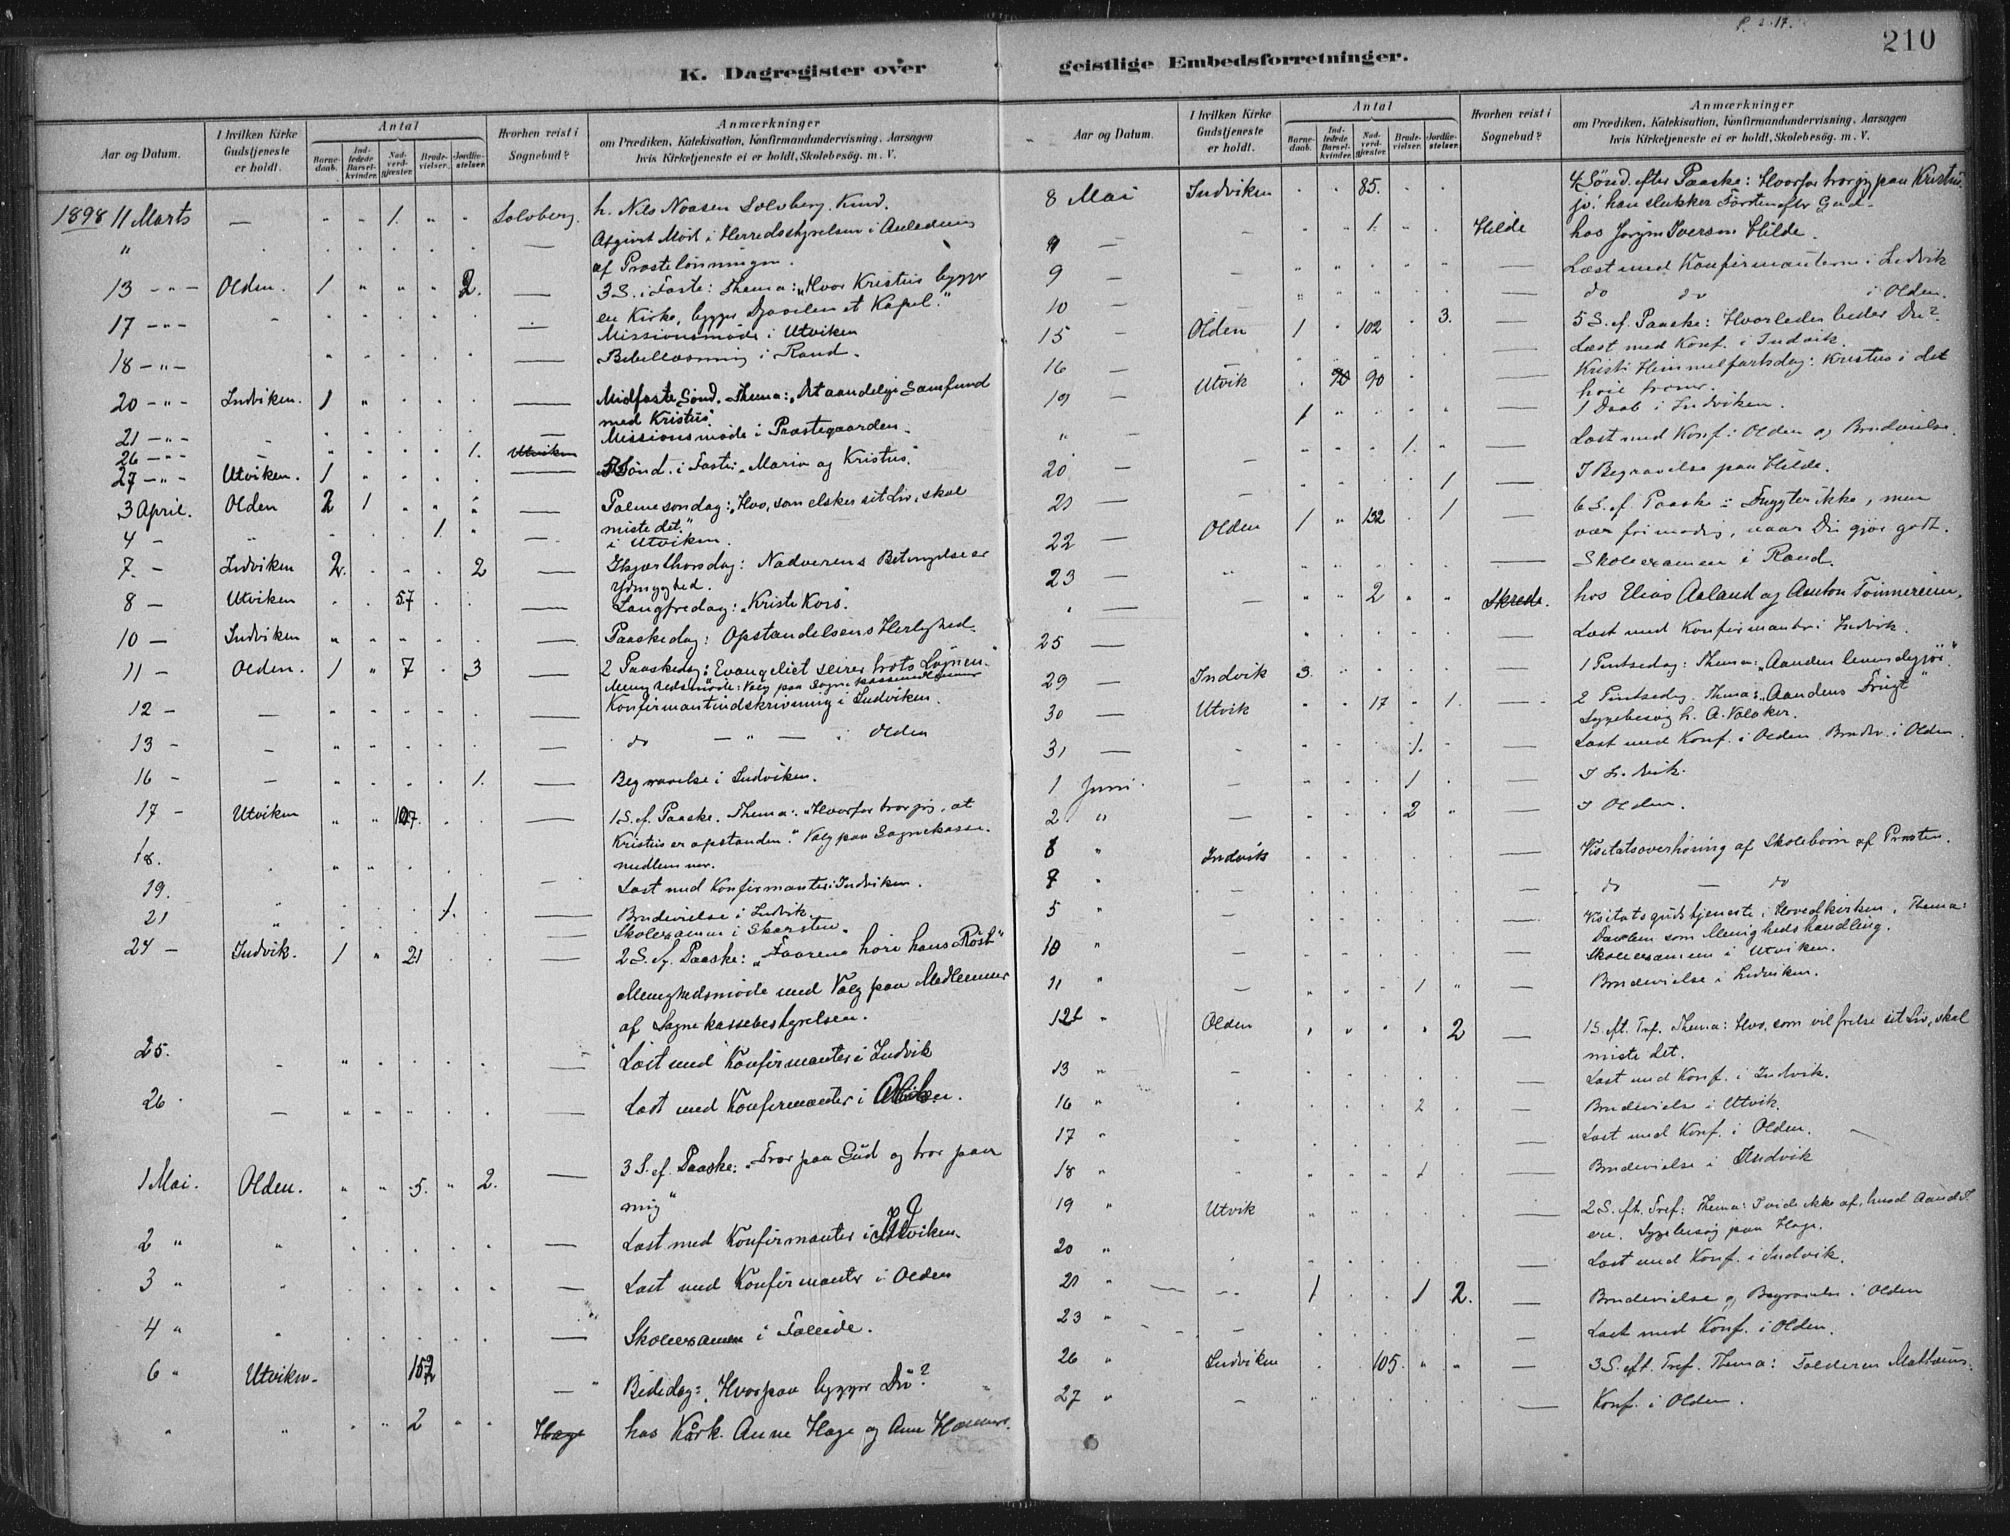 P. 217.
210
K. Dagregister over
geistlige Embedsforretninger.
Aar og Datum.
I hvilken Kirke Gudstjeneste er holdt.
Antal
Barnedaab.
Indledede Barselkvinder.
Nadverdgjæster.
Brudevielser.
Jordfæstelser.
Hvorhen reist i Sognebud?
Anmærkninger
om Prædiken, Katekisation, Konfirmandundervisning, Aarsagen
hvis Kirketjeneste ei er holdt, Skolebesög. m. V.
1898 11 Marts — " " 1. " " Solvberg. h. Nils Noasen Solvberg. Kind.
" — Afgivet Mød i Herredsstyrelsen i Anledning
af Prostelønningen.
13 - " - Olden. 1 " " " 2. — 3 S. i Faste: Thema: „Hvor Kristus bygger
en Kirke, bygger Djævelen et Kapel."
17 - " - — Missionsmøde i Utviken
18 - " - — Bibellæsning i Rand.
20 - " - Indviken. 1 " — Midfaste Sønd. Thema: „Det aandelige Samfund
med Kristus".
21 - " - — Missionsmøde i Præstegaarden.
26 - " - 1. Utviken
27 - " - Utviken. 1 — Sønd. i Faste: „Maria og Kristus".
3 April. Olden 2 1 — Palmesøndag: „Hvo, som elsker sit Liv, skal
miste det."
4 — 1. — i Utviken.
7. — Indviken 2. 2 — Skjærthorsdag: Nadverens Betingelse er
Ydmyghed.
8 — Utviken 57 — Langfredag: „Kristi Kors".
10 — Indviken — Paaskedag: Opstandelsens Herlighed.
11 — Olden. 1 " 7 . 3 — 2 Paaskedag: „Evangeliet seirer trods Løgnen."
Menighedsmøde: Valg paa Sognekassemedlemmer
12 — — Konfirmantindskrivning i Indviken.
13 — — do — " — i Olden
16 — — 1. — Begravelse i Indviken.
17 — Utviken 107. — 1 S. f. Paaske. Thema: „Hvorfor tror jeg, at
Kristus er opstanden." Valg paa Sognekasse-
medlemmer.
18. — Læst med Konfirmanter i Indviken.
19. 1. — Brudevielse i Indvik.
21 — Skolexamen i Skarsten.
24 — Indvik. 1 " 21 — 2 S. ef. Paaske: „Faarene høre hans Røst"
Menighedsmøde med Valg paa Medlemmer
af Sognekassebestyrelsen.
25. — Læst med Konfirmanter i Indvik
26 — — Læst med Konfirmanter i
1 Mai. Olden. " " 5. " 2. — 3 S. ef. Paaske: „Tror paa Gud og tror paa
mig"
2 " — Læst med Konfirmanter i
3 " — Læst med Konfirmanter i Olden
4 " — Skoleexamen i Faleide.
6 " Utviken. 152 — Bededag: „Hvorpaa bygger Du?"
" " 2 " " Hage hos Kårk. Anne Hage og Ane
Aar og Datum.
I hvilken Kirke Gudstjeneste er holdt.
Antal
Barnedaab.
Indledede Barselkvinder.
Nadverdgjæster.
Brudevielser.
Jordfæstelser.
Hvorhen reist i Sognebud?
Anmærkninger
om Prædiken, Katekisation, Konfirmandundervisning, Aarsagen
hvis Kirketjeneste ei er holdt, Skolebesög. m. V.
8 Mai Indviken 85. 4 Sønd. efter Paaske: Hvorfor tror jeg paa Kristus
jo! han slukker Tørsten efter Gud.
9 — 1. Hilde hos Jørgen Iversen Hilde.
9 — — Læst med Konfirmanterne i Indvik
10 — — do do i Olden.
15 — Olden 1 " 102 . 3. — 5 S. ef. Paaske: Hvorledes beder Du?
16 — — Læst med Konf. i Indvik.
19 — Utvik 90 90 — Kristi Himmelfartsdag: Kristus i det
høie troner.
" — 1 — 1 Daab i Indviken.
20 — 1. — Læst med Konf. i Olden og Brudevielse.
21 — 1 — I Begravelse paa Hilde.
22 — Olden 1 " 132 . 1 — 6 S. ef. Paaske: Frygter ikke, men
vær frimodig, naar Du gjør godt.
23 — — Skoleexamen i Rand.
" — 2 Skrede. hos Elias Aaland og Anton Tommereim.
25 — — Læst med Konfirmanter i Indvik.
29 — Indvik 3. — 1 Pintsedag: Thema: „Aanden levendegjør."
30 — Utvik 17 1. — 2 Pintsedag. Thema: „Aandens Frugt"
Sygebesøg h. A. Valaker.
31 — 1. — Læst med Konf. i Olden. Brudev. i Olden.
1 Juni. 1 — I Indvik.
2 " 2 — I Olden.
8 " Indvik — Visitatsoverhøring af Skolebørn af Prosten.
7 " — — do — do
5 " — — Visitatsgudstjeneste i Hovedkirken. Thema:
Daaben som Menighedshandling.
10 " — Skoleexamen i Utviken.
11 " — 1 — Brudevielse i Indviken.
12 " Olden 2 — 1 S. eft. Tref. Thema: Hvo, som vil frelse sit Liv, skal
miste det.
13 " — — Læst med Konf. i Indvik.
16 " 2 — Brudevielse i Utvik.
17 " — Læst med Konf. i Olden.
18 " 1 — Brudevielse i Indvik
19 " Utvik — 2 S. eft. Tref: Thema: I vide ikke af, hvad Aand I
ere. Sygebesøg paa Hage.
20 " — Læst med Konf. i Indvik.
21 " 1 1 2. — Brudevielse og Begravelse i Olden
23 " — — Læst med Konf. i Olden.
26 " Indviken 105. " " — 3 S. eft. Tref. Thema: Tolderen Mathæus.
27 " — — Konf. i Olden.